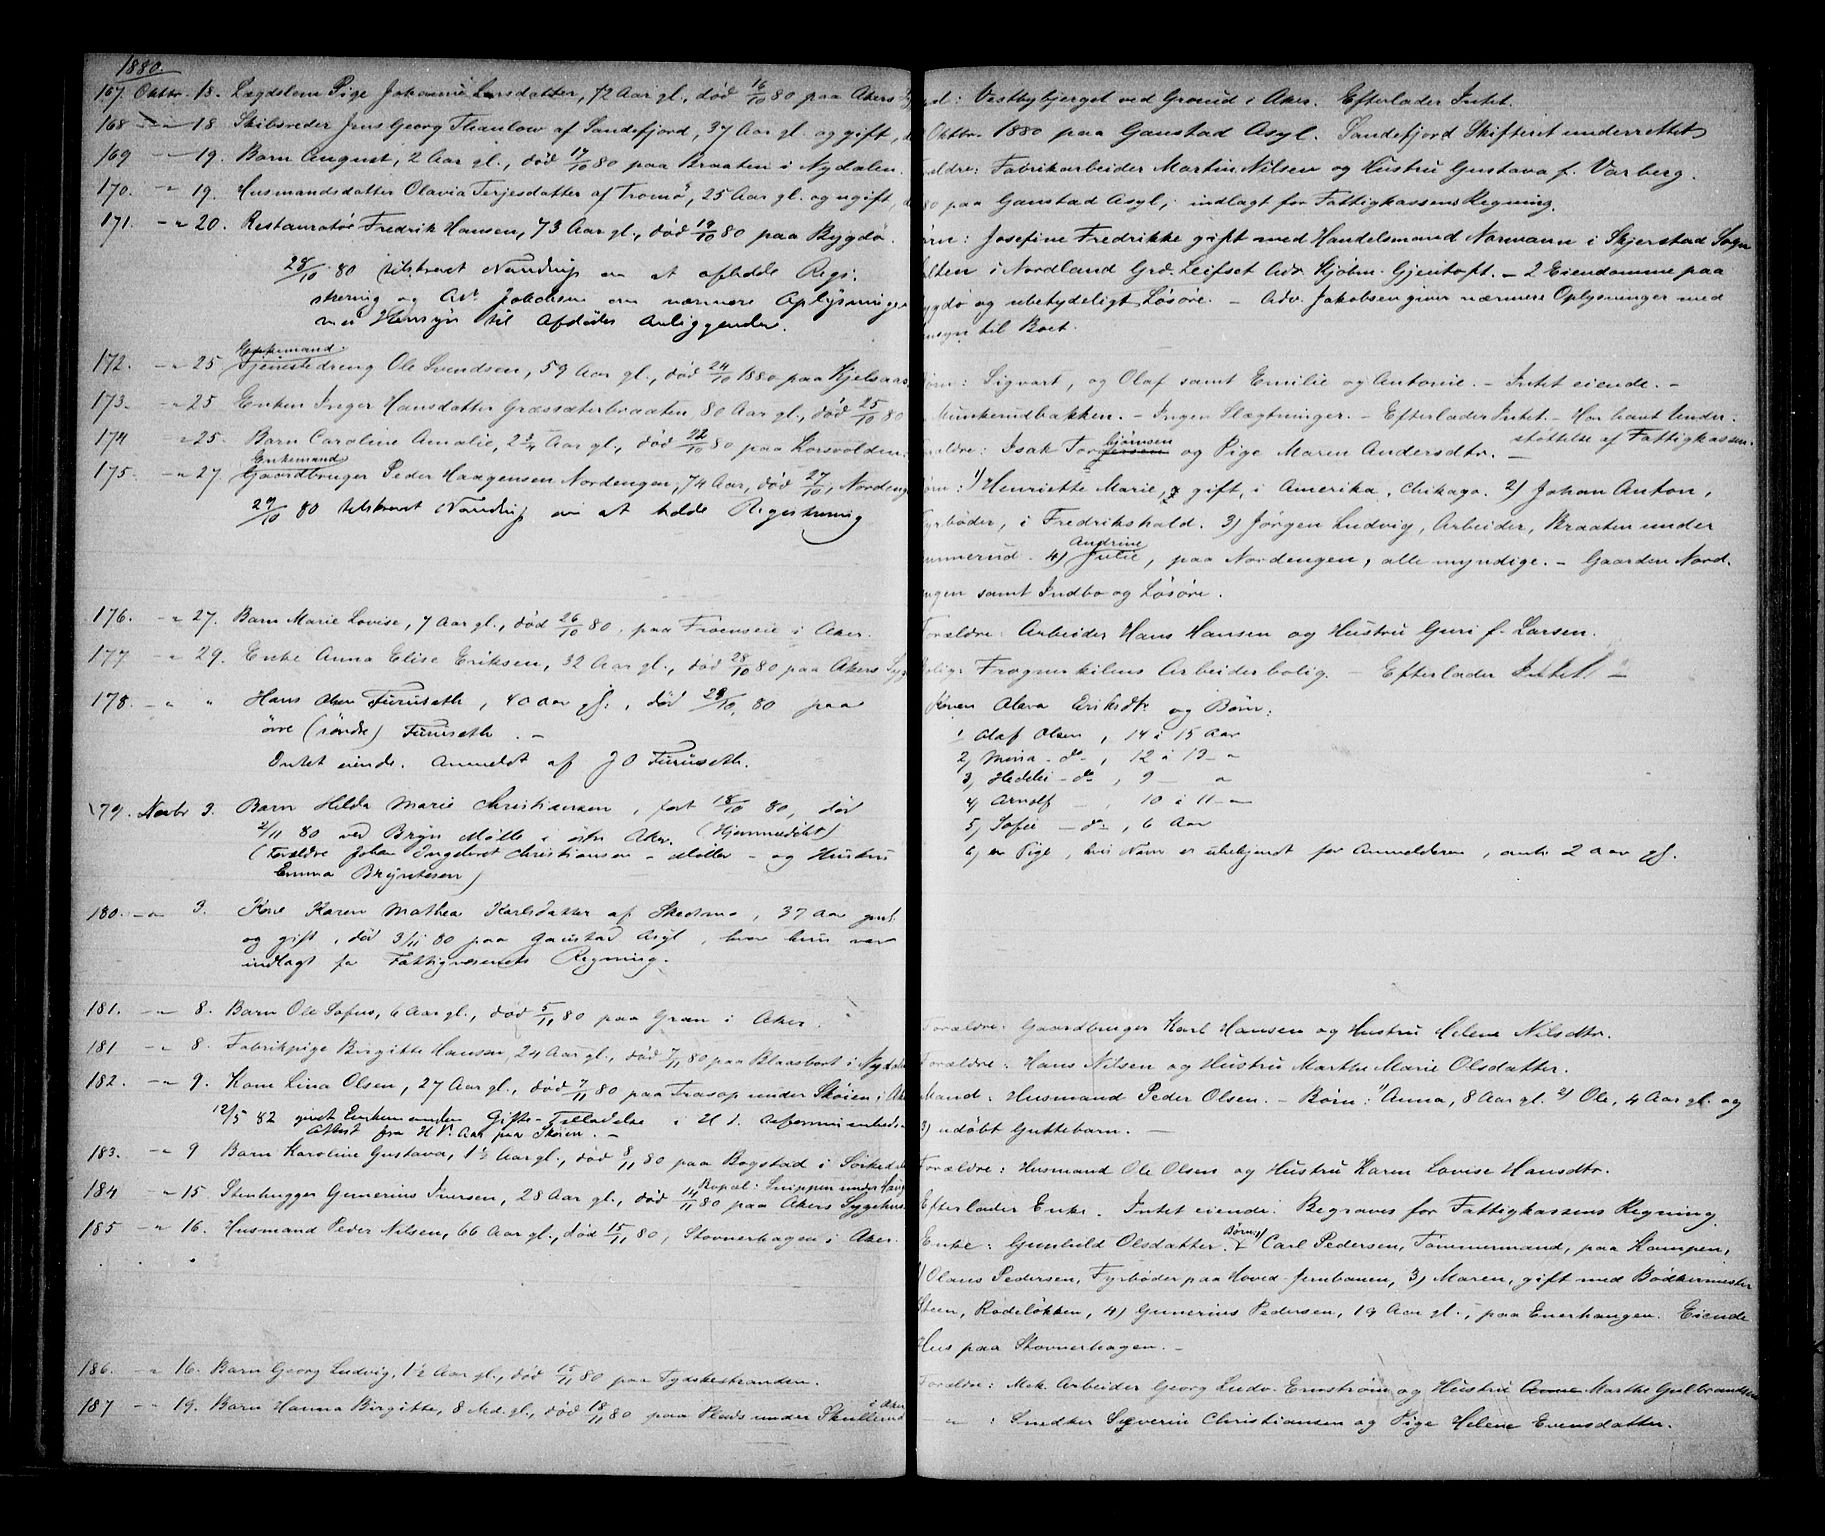 1880.
167. Oktbr. 18. Lægdslem Pige Johanne Larsdatter, 72 Aar gl., død 16/10 80 paa Akers
168 -"- 18. Skibsreder Jens Georg Thaulow af Sandefjord, 37 Aar gl. og gift,
169 -"- 19. Barn August, 2 Aar gl., død 17/10 80 paa Braaten i Nydalen.
170. -"- 19. Husmandsdatter Olavia Terjesdatter af Tromø, 25 Aar gl. og ugift,
171. -"- 20. Restauratør Fredrik Hansen, 73 Aar gl., død 19/10 80 paa Bygdø.
28/10 80 tilskrevet Nandrup om at afholde Regi-
strering og Adv. Jakobsen om nærmere Oplysninger
med Hensyn til Afdødes Anliggender.
Enkemand
172. -"- 25 Tjenestedreng Ole Svendsen, 59 Aar gl., død 24/10 1880 paa Kjelsaas
173. -"- 25 Enken Inger Hansdatter Græssæterbraaten, 80 Aar gl., død 25/10 80
174 -"- 25. Barn Caroline Amalie, 2 3/4 Aar gl., død 22/10 80 paa Korsvolden.
Enkemand
175. -"- 27. Gaardbruger Peder Haagensen Nordengen, 74 Aar, død 27/10, Nordeng
29/10 80 tilskrevet Nandrup om at holde Registrering
176. -"- 27. Barn Marie Lovise, 7 Aar gl., død 26/10 80, paa Froenseie i Aker.
177 -"- 29. Enke Anna Elise Eriksen, 32 Aar gl., død 28/10 80 paa Akers Syg
178. -"- " Hans Olsen Furuseth, 40 Aar gl., død 29/10 80 paa
øvre (søndre) Furuseth. -
Intet eiende. Anmeldt af J O Furuseth.
179. Novbr 3. Barn Hilda Marie Christiansen, født 18/10 80, død
2/11 80 ved Bryn Mølle i østre Aker. (Hjemmedøbt)
(Forældre Johan Ingebret Christiansen - Møller - og Hustru
Emma Bryntesen)
180. -"- 3. Kone Karen Mathea Karlsdatter af Skedsmo, 37 Aar gml.
og gift, død 3/11 80 paa Gaustad Asyl, hvor hun var
indlagt for Fattigvæsenets Regning.
181. -"- 8. Barn Ole Sofus, 6 Aar gl., død 5/11 80 paa Gran i Aker.
181 -"- 8. Fabrikpige Birgitte Hansen, 24 Aar gl., død 7/11 80 paa Blaasbort i Nydalen
182. -"- 9. Kone Lina Olsen, 27 Aar gl., død 7/11 80 paa Trasop under Skøien i Aker
12/5 82 givet Enkemanden Gifte-Tilladelse i H. t.
Attest fra H V. Aas paa Skøien. -
183. -"- 9 Barn Karoline Gustava, 1 1/2 Aar gl., død 8/11 80 paa Bogstad i Sørkedal
Bopæl: Snippen under Haug
184 -"- 15. Stenhugger Gunerius Iversen, 28 Aar gl., død 14/11 80 paa Akers Sygehus.
185 -"- 16. Husmand Peder Nilsen, 66 Aar gl., død 15/11 80, Stovnerhagen i Aker.
186. -"- 16. Barn Georg Ludvig, 1 1/2 Aar gl., død 15/11 80 paa Tydskestranden.
i Aker
187 -"- 19. Barn Hanna Birgitte, 8 Md. gl., død 18/11 80 paa Plads under Skullerud
Vestbybjerget ved Grorud i Aker. Efterlader Intet.
Oktbr. 1880 paa Gaustad Asyl. Sandefjord Skifteret underrettet
ldre: Fabrikarbeider Martin Nilsen og Hustru Gustava f. Varberg.
80 paa Gaustad Asyl, indlagt for Fattigkassens Regning.
ørn: Josefine Fredrikke gift med Handelsmand Normann i Skjerstad Sogn
lten i Nordland Grd. Leifset Adr. Kjøbm. Gjentoft. - 2 Eiendomme paa
ygdø og ubetydeligt Løsøre. - Adv. Jakobsen giver nærmere Oplysninger med
nsyn til Boet.
ørn: Sigvart, og Olaf samt Emilie og Antonie. - Intet eiende. -
Munkerudbakken. - Ingen Slægtninger. - Efterlader Intet. - Har havt Under-
støttelse af Fattigkassen.
bjørnsen
ældre: Isak Torgersen og Pige Maren Andersdtr. -
ørn: 1) Henriette Marie, gift, i Amerika, Chikago. 2) Johan Anton,
Fyrbøder, i Fredrikshald. 3) Jørgen Ludvig, Arbeider, Braaten under
Andrine
mmerud. 4) Julie, paa Nordengen, alle myndige. - Gaarden Nord-
ngen samt Indbo og Løsøre.
Forældre: Arbeider Hans Hansen og Hustru Guri f. Larsen.
Bolig: Frognerkilens Arbeiderbolig. - Efterlader Intet. -
Konen Olava Eriksdtr og Børn:
1 Olaf Olsen, 14 à 15 Aar
2) Mina - do -, 12 à 13 - "
3) - do -, 9 - "
4) Arnolf - , 10 à 11 - "
5) Sofie - do -, 6 Aar
6) en Pige, hvis Navn er ubekjendt for Anmelderen, omtr. 2 Aar gl.
Forældre: Gaardbruger Karl Hansen og Hustru Helene Nilsdtr.
Forældre: Hans Nilsen og Hustru Marthe Marie Olsdatter.
Mand: Husmand Peder Olsen. - Børn: 1) Anna, 8 Aar gl. 2) Ole, 4 Aar gl. og
3) udøbt Guttebarn. -
Forældre: Husmand Ole Olsen og Hustru Karen Lovise Hansdtr.
Efterlader Enke. Intet eiende. Begraves for Fattigkassens Regning.
Børn: 1)
Enke: Gunhild Olsdatter. Carl Pedersen, Tømmermand, paa Kampen,
2) Olaus Pedersen, Fyrbøder paa Hoved-Jernbanen, 3) Maren, gift med Bødkermester
Steen, Rodeløkken, 4) Gunerius Pedersen, 19 Aar gl., paa Enerhaugen. Eiende
Hus paa Stovnerhagen. -
Forældre: Mek. Arbeider Georg Ludv. Ernstrøm og Hustru Anne Marthe Gulbrandsen
- " - : Smedker Severin Christiansen og Pige Helene Evensdatter.